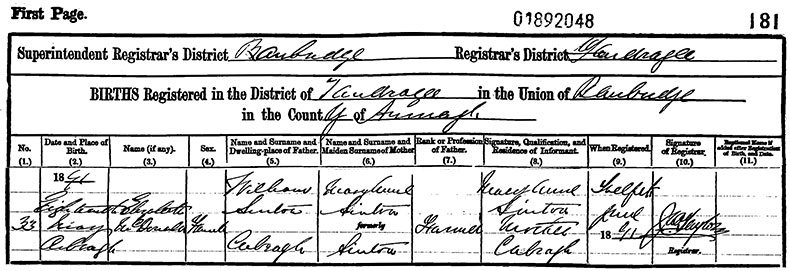 First Page. 01892048 181
Superintendent Registrar's District Banbridge Registrar's District Tandragee
BIRTHS Registered in the District of Tandragee in the Union of Banbridge
in the County of Armagh
No. Date and Place of Birth. Name (if any). Sex. Name and Surname and Dwelling-place of Father. Name and Surname and Maiden Surname of Mother Rank or Profession of Father. Signature, Qualification, and Residence of Informant. When Registered. Signature of Registrar. Baptismal Name if added after Registration of Birth, and Date.
(1.) (2.) (3.) (4.) (5.) (6.) (7.) (8.) (9.) (10.) (11.)
1891 William Mary Anne Mary Anne Twelfth
Eighteenth Elizabeth Sinton Sinton Sinton June
33 May McDonald Female formerly Farmer Mother 1891
Cabragh Cabragh Sinton Cabragh Registrar.